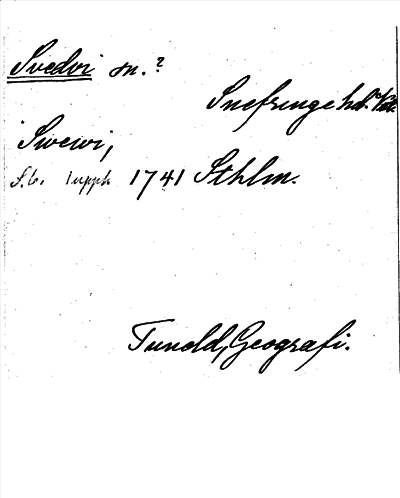 Svedvi sn.?
Snefringe hd.
Swewi,
S. 6. 1 uppl. 1741 Sthlm.
Tuneld, Geografi.